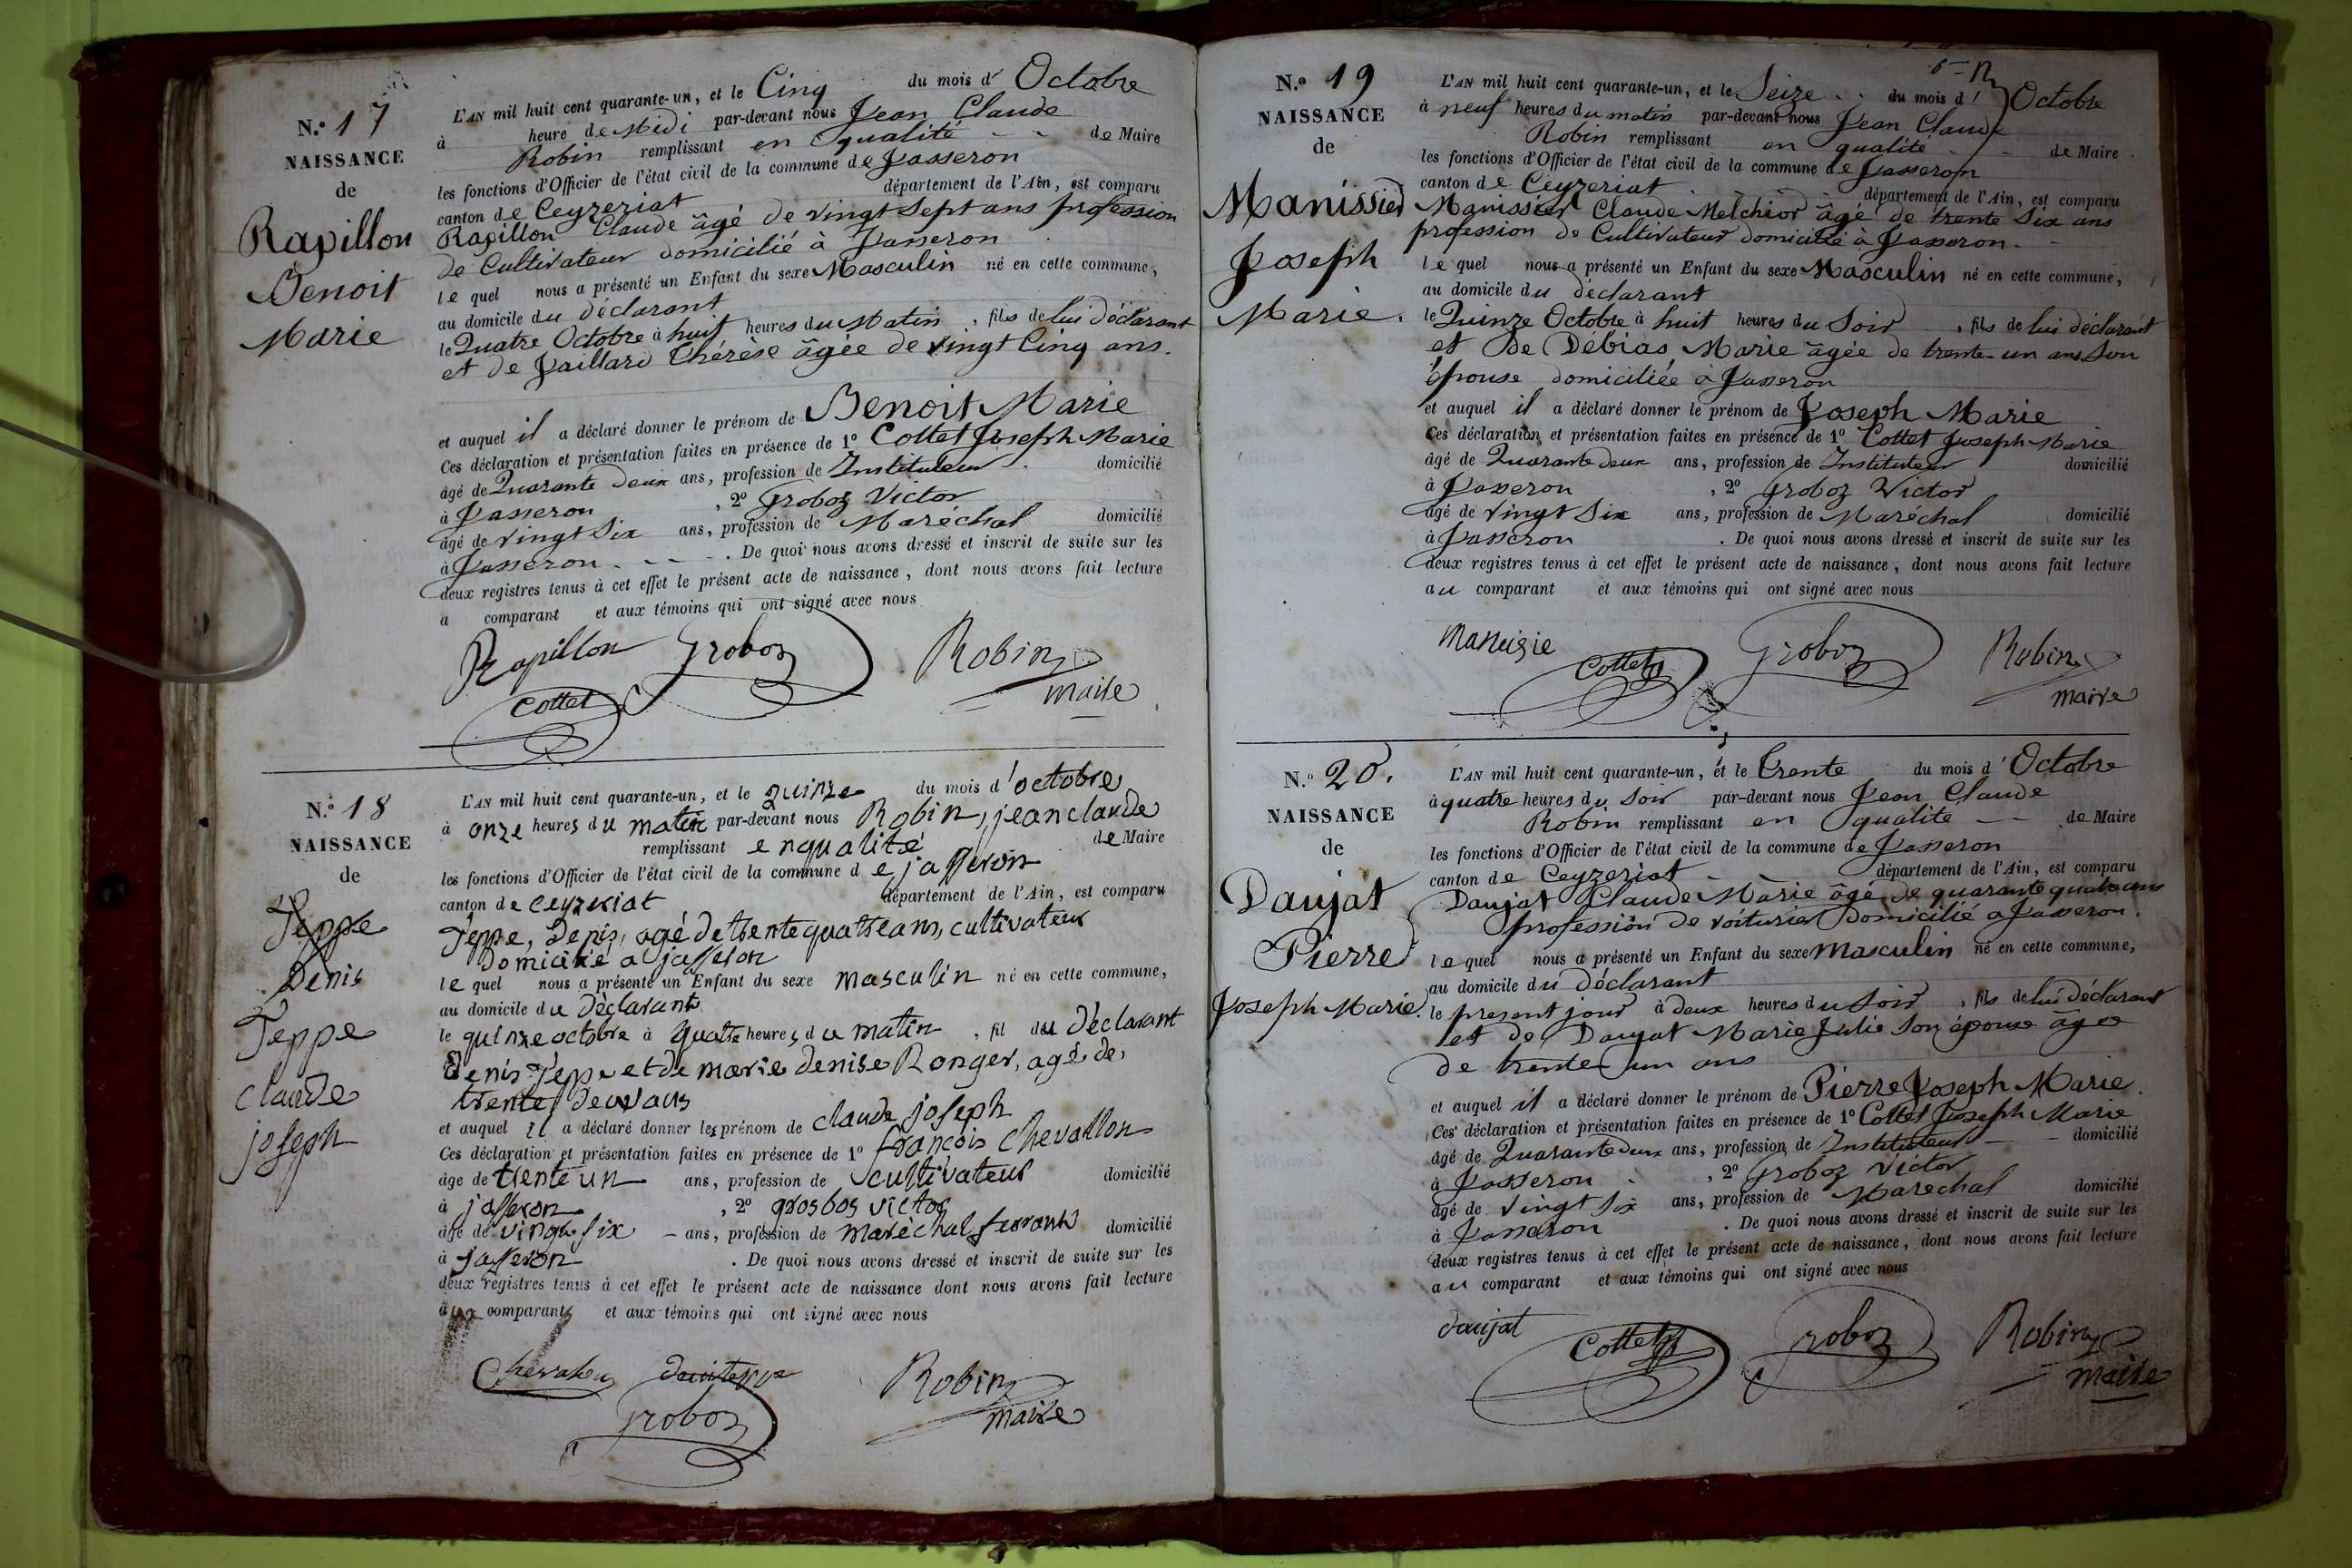 N.º 17
NAISSANCE
de
Rapillon
Benoit
Marie
L'AN mil huit cent quarante-un, et le Cinq du mois d' Octobre
à heure de Midi par-devant nous Jean Claude
Robin remplissant en qualité de Maire
les fonctions d'Officier de l'état civil de la commune de Jasseron
canton de Ceyzeriat département de l'Ain, est comparu
Rapillon Claude âgé de vingt sept ans profession
de Cultivateur domicilié à Jasseron
lequel nous a présenté un Enfant du sexe Masculin né en cette commune,
au domicile du déclarant
le Quatre Octobre à huit heures du Matin, fils de lui déclarant
et de Jaillard Thérèse âgée de vingt Cinq ans.
et auquel il a déclaré donner le prénom de Benoit Marie
Ces déclaration et présentation faites en présence de 1º Cottet Joseph Marie
âgé de Quarante deux ans, profession de Instituteur domicilié
à Jasseron, 2º Groboz Victor
âgé de vingt Six ans, profession de Maréchal domicilié
à Jasseron. De quoi nous avons dressé et inscrit de suite sur les
deux registres tenus à cet effet le présent acte de naissance, dont nous avons fait lecture
a comparant et aux témoins qui ont signé avec nous
Rapillon Groboz Robin
Cottet maire
N.º 18
NAISSANCE
de
Teppe
Denis
Teppe
claude
joseph
L'AN mil huit cent quarante-un, et le quinze du mois d'octobre
à onze heures du matin par-devant nous Robin, jean claude
remplissant en qualité de Maire
les fonctions d'Officier de l'état civil de la commune de jasseron
canton de ceyzeriat département de l'Ain, est comparu
Teppe, Denis, agé de trente quatre ans, cultivateur
Domicilié a jasseron
lequel nous a présenté un Enfant du sexe masculin né en cette commune,
au domicile du Déclarant
le quinze octobre à quatre heures du matin, fil du Déclarant
Denis Teppe et de marie denise Ronger, agé de
trente deux ans
et auquel il a déclaré donner les prénom de claude joseph
Ces déclaration et présentation faites en présence de 1º françois chevallon
âge de trente un ans, profession de cultivateur domicilié
à jasseron, 2º grosbos victor
âgé de vingt six ans, profession de maréchal ferrant domicilié
à jasseron. De quoi nous avons dressé et inscrit de suite sur les
deux registres tenus à cet effet le présent acte de naissance dont nous avons fait lecture
comparant et aux témoins qui ont signé avec nous
Robin
Groboz maire
N.º 19
NAISSANCE
de
Manissier
Joseph
Marie.
L'AN mil huit cent quarante-un, et le Seize du mois d' Octobre
à neuf heures du matin par-devant nous Jean Claude
Robin remplissant en qualité de Maire
les fonctions d'Officier de l'état civil de la commune de Jasseron
canton de Ceyzeriat département de l'Ain, est comparu
Manissier Claude Melchior âgé de trente Six ans
profession de Cultivateur domicilié à Jasseron.
lequel nous a présenté un Enfant du sexe Masculin né en cette commune,
au domicile du déclarant
le Quinze Octobre à huit heures du Soir, fils de lui déclarant
et de Débias Marie âgée de trente-un ans Son
épouse domiciliée à Jasseron
et auquel il a déclaré donner le prénom de Joseph Marie
Ces déclaration et présentation faites en présence de 1º Cottet Joseph Marie
âgé de Quarante deux ans, profession de Instituteur domicilié
à Jasseron, 2º Groboz Victor
âgé de vingt Six ans, profession de Maréchal domicilié
à Jasseron. De quoi nous avons dressé et inscrit de suite sur les
deux registres tenus à cet effet le présent acte de naissance, dont nous avons fait lecture
au comparant et aux témoins qui ont signé avec nous
Cottet Groboz Robin
maire
N.º 20.
NAISSANCE
de
Daujat
Pierre
Joseph Marie.
L'AN mil huit cent quarante-un, et le trente du mois d' Octobre
à quatre heures du Soir par-devant nous Jean Claude
Robin remplissant en qualité de Maire
les fonctions d'Officier de l'état civil de la commune de Jasseron
canton de Ceyzeriat département de l'Ain, est comparu
Daujat Claude Marie âgé de quarante quatre ans
profession de voiturier domicilié a Jasseron.
lequel nous a présenté un Enfant du sexe masculin né en cette commune,
au domicile du déclarant
le present jour à deux heures du Soir, fils de lui déclarant
et de Daujat Marie Julie Son épouse âgée
de trente un ans
et auquel il a déclaré donner le prénom de Pierre Joseph Marie
Ces déclaration et présentation faites en présence de 1º Cottet Joseph Marie
âgé de Quarante deux ans, profession de Instituteur domicilié
à Jasseron, 2º Groboz Victor
âgé de vingt Six ans, profession de Maréchal domicilié
à Jasseron. De quoi nous avons dressé et inscrit de suite sur les
deux registres tenus à cet effet le présent acte de naissance, dont nous avons fait lecture
au comparant et aux témoins qui ont signé avec nous
daujat Cottet Groboz Robin
maire